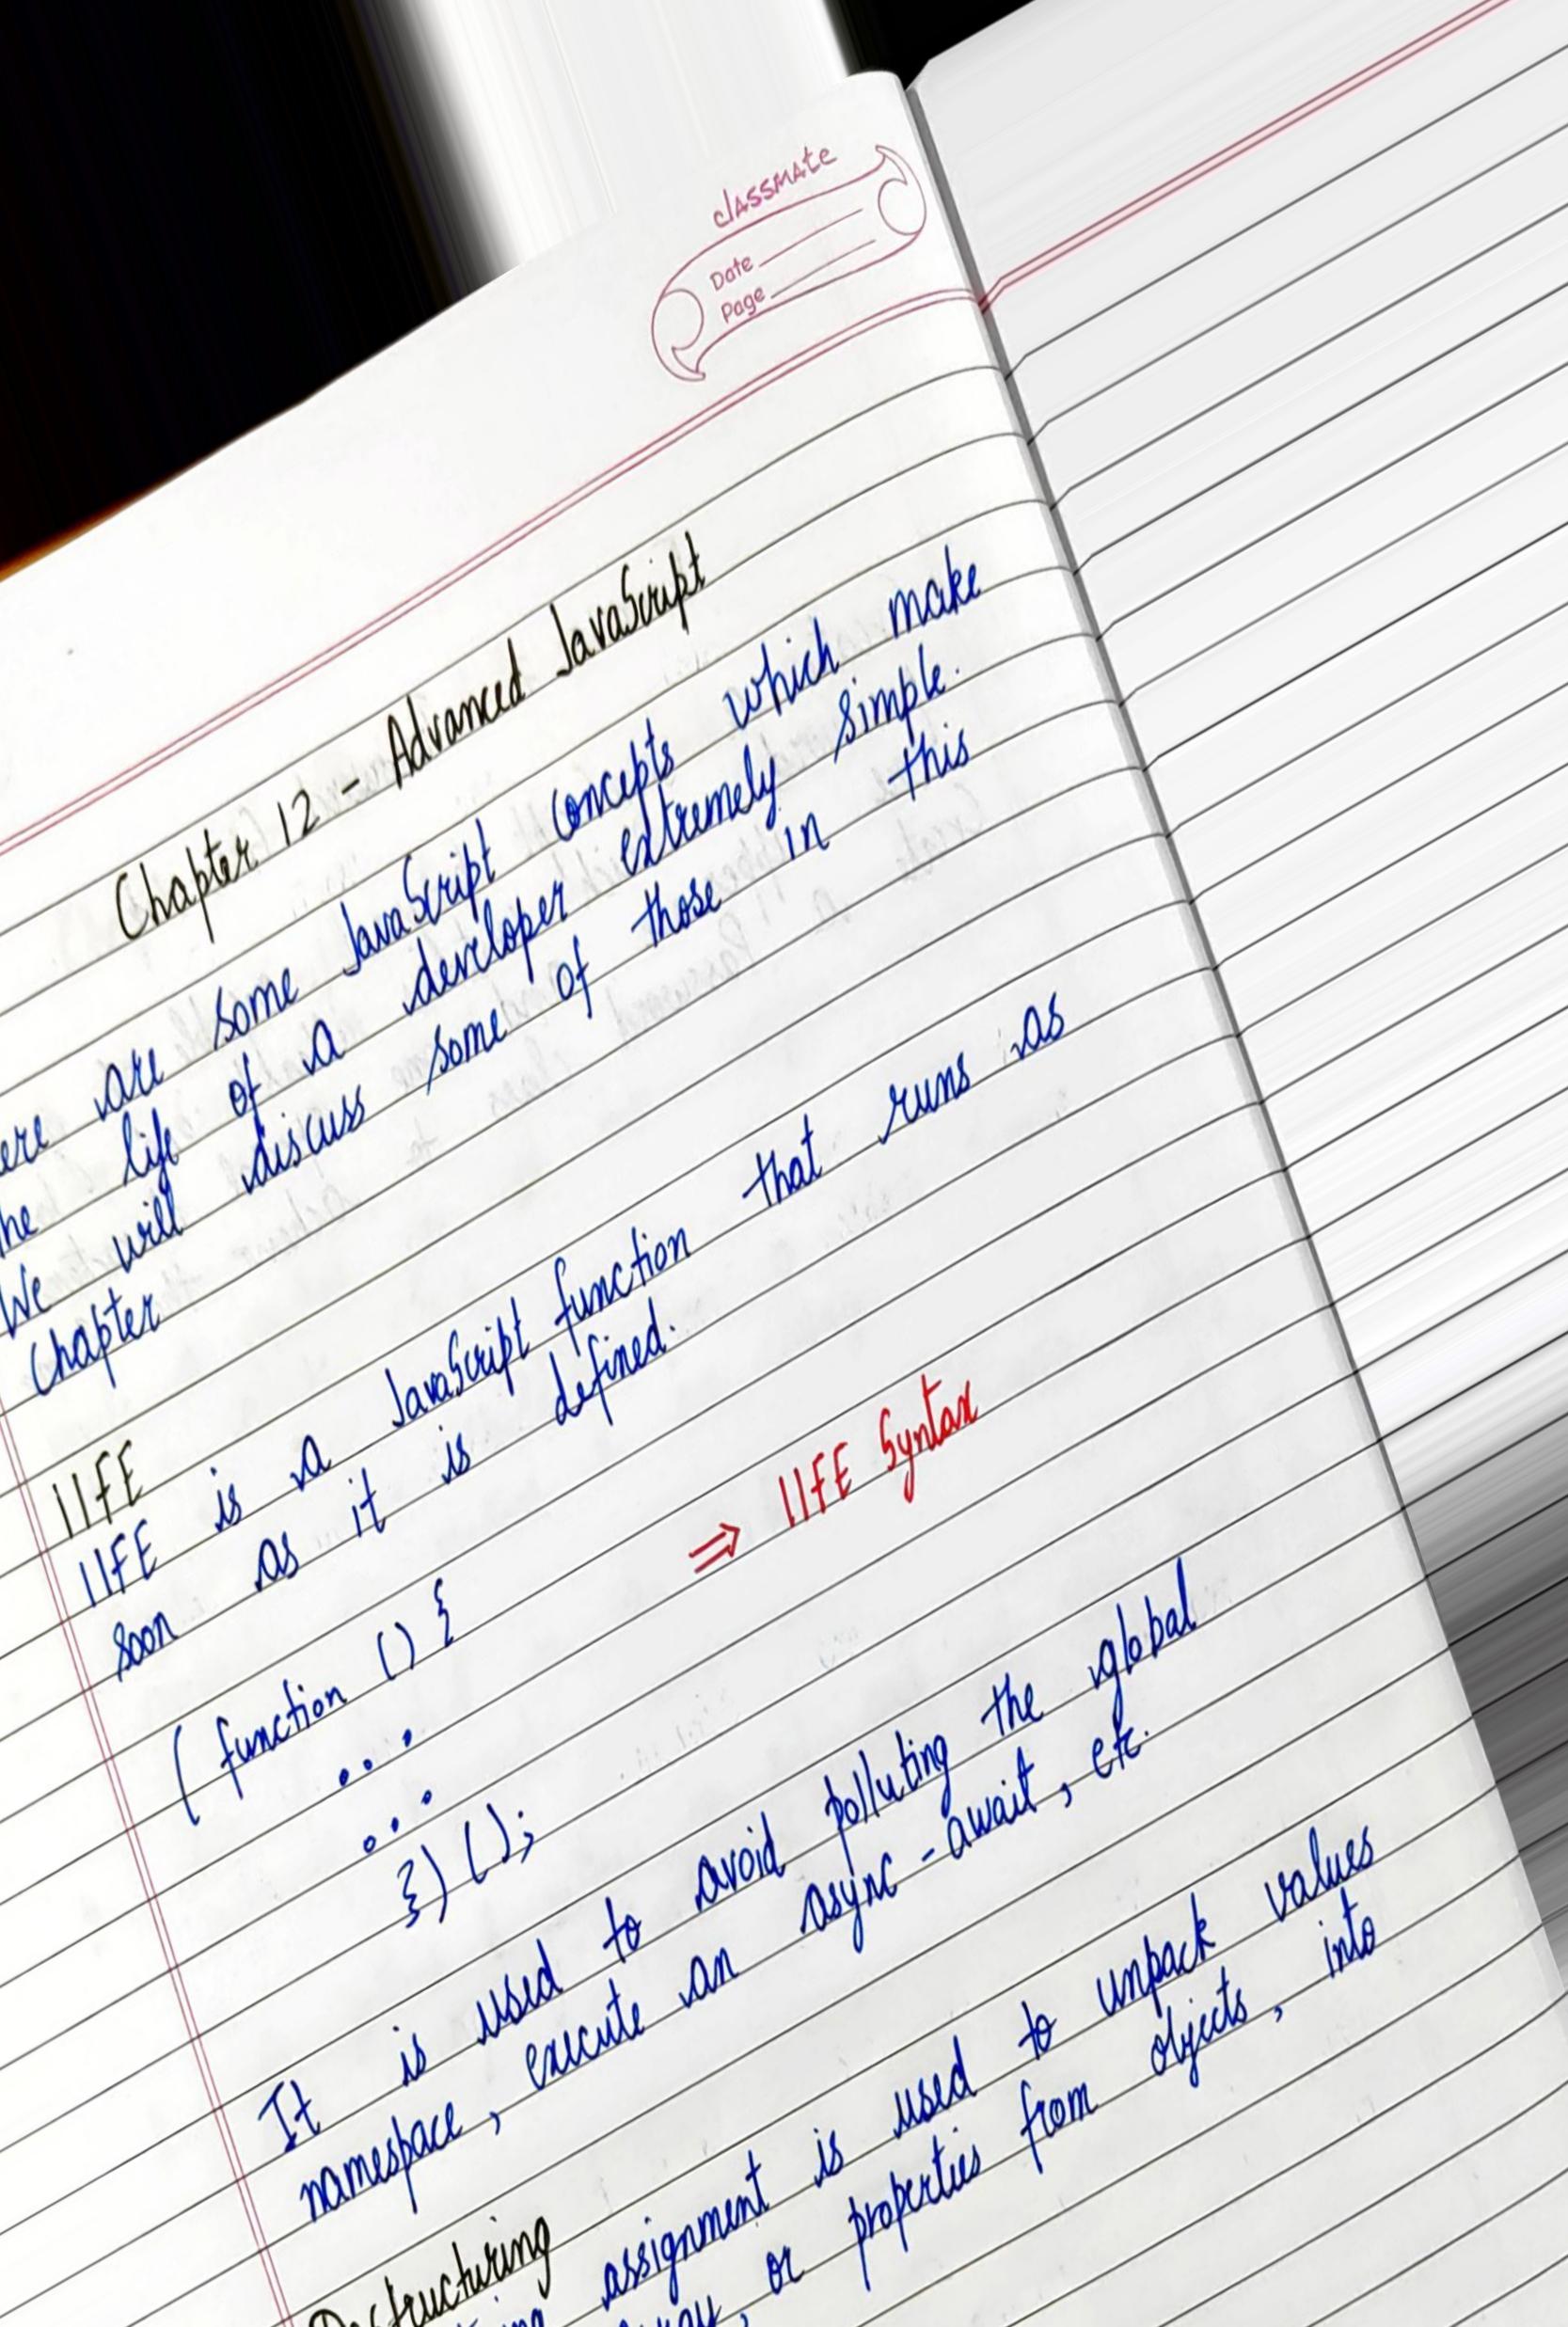 classmate
Date
Page
Chapter 12 - Advanced JavaScript
ere are some JavaScript concepts which make
he life of a developer extremely simple.
We will discuss some of those in this
Chapter
IIFE
IIFE is a JavaScript function that runs as
soon as it is defined.
( function () { ⇒ IIFE Syntax
...
...
}) ();
It is used to avoid polluting the global
namespace, execute an async-await, etc.
Destructuring
assignment is used to unpack values
or properties from objects, into